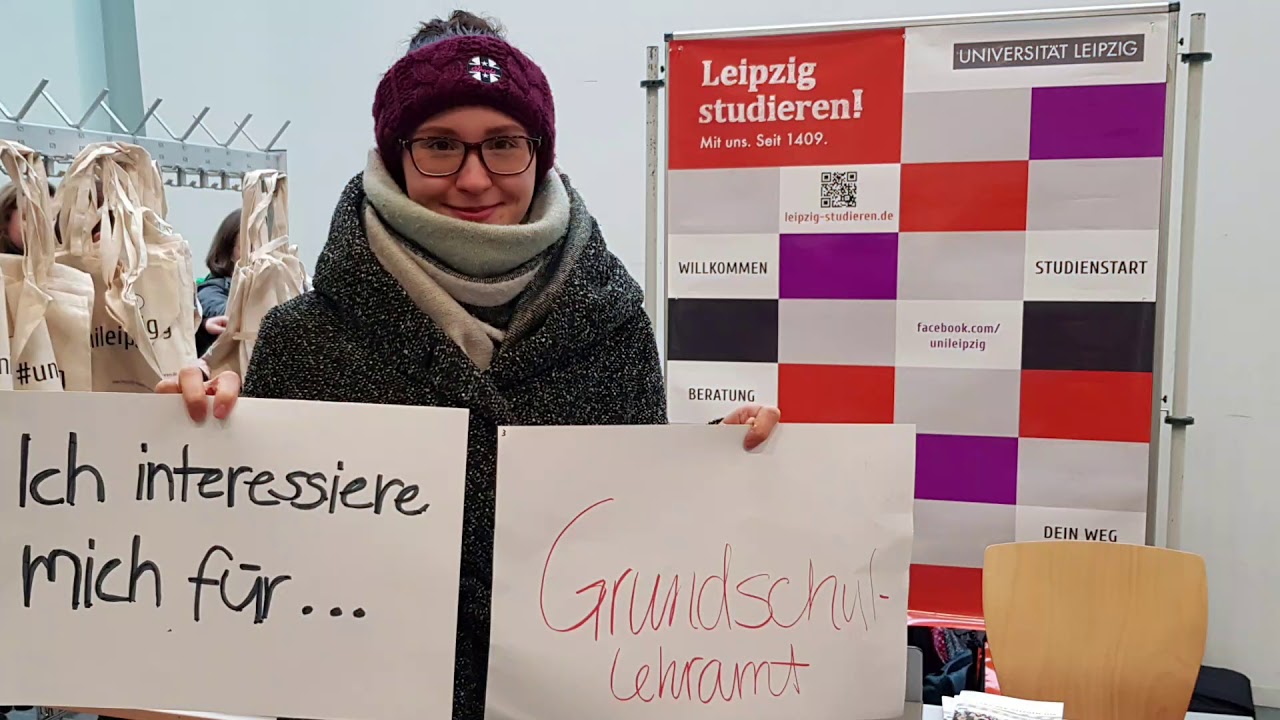 Leipzig
studieren!
Mit uns. Seit 1409.
UNIVERSITÄT LEIPZIG
leipzig-studieren.de
WILLKOMMEN
STUDIENSTART
facebook.com/
unileipzig
BERATUNG
DEIN WEG
#un
Ich interessiere
mich für...
3
Grundschul-
lehramt